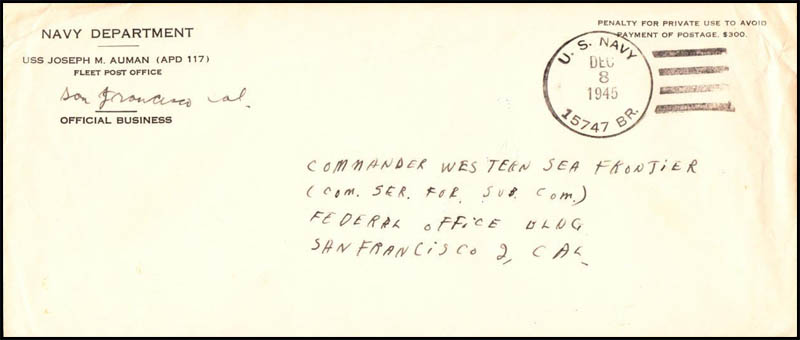 NAVY DEPARTMENT
USS JOSEPH M. AUMAN (APD 117)
FLEET POST OFFICE
San Francisco Cal.
OFFICIAL BUSINESS
PENALTY FOR PRIVATE USE TO AVOID
PAYMENT OF POSTAGE, $300.
U. S. NAVY
DEC
8
1945
15747 BR.
COMMANDER WESTERN SEA FRONTIER
(COM. SER. FOR. SUB. COM.)
FEDERAL OFFICE BLDG
SAN FRANCISCO 2, CAL.